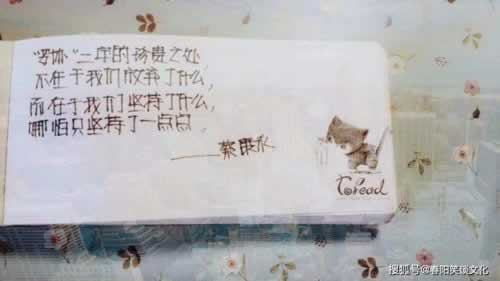 二年的珍贵之处
不在于我们放弃了什么，
而在于我们坚持了什么，
哪怕只坚持了一点点。
——蔡康永
搜狐号@春阳笑谈文化